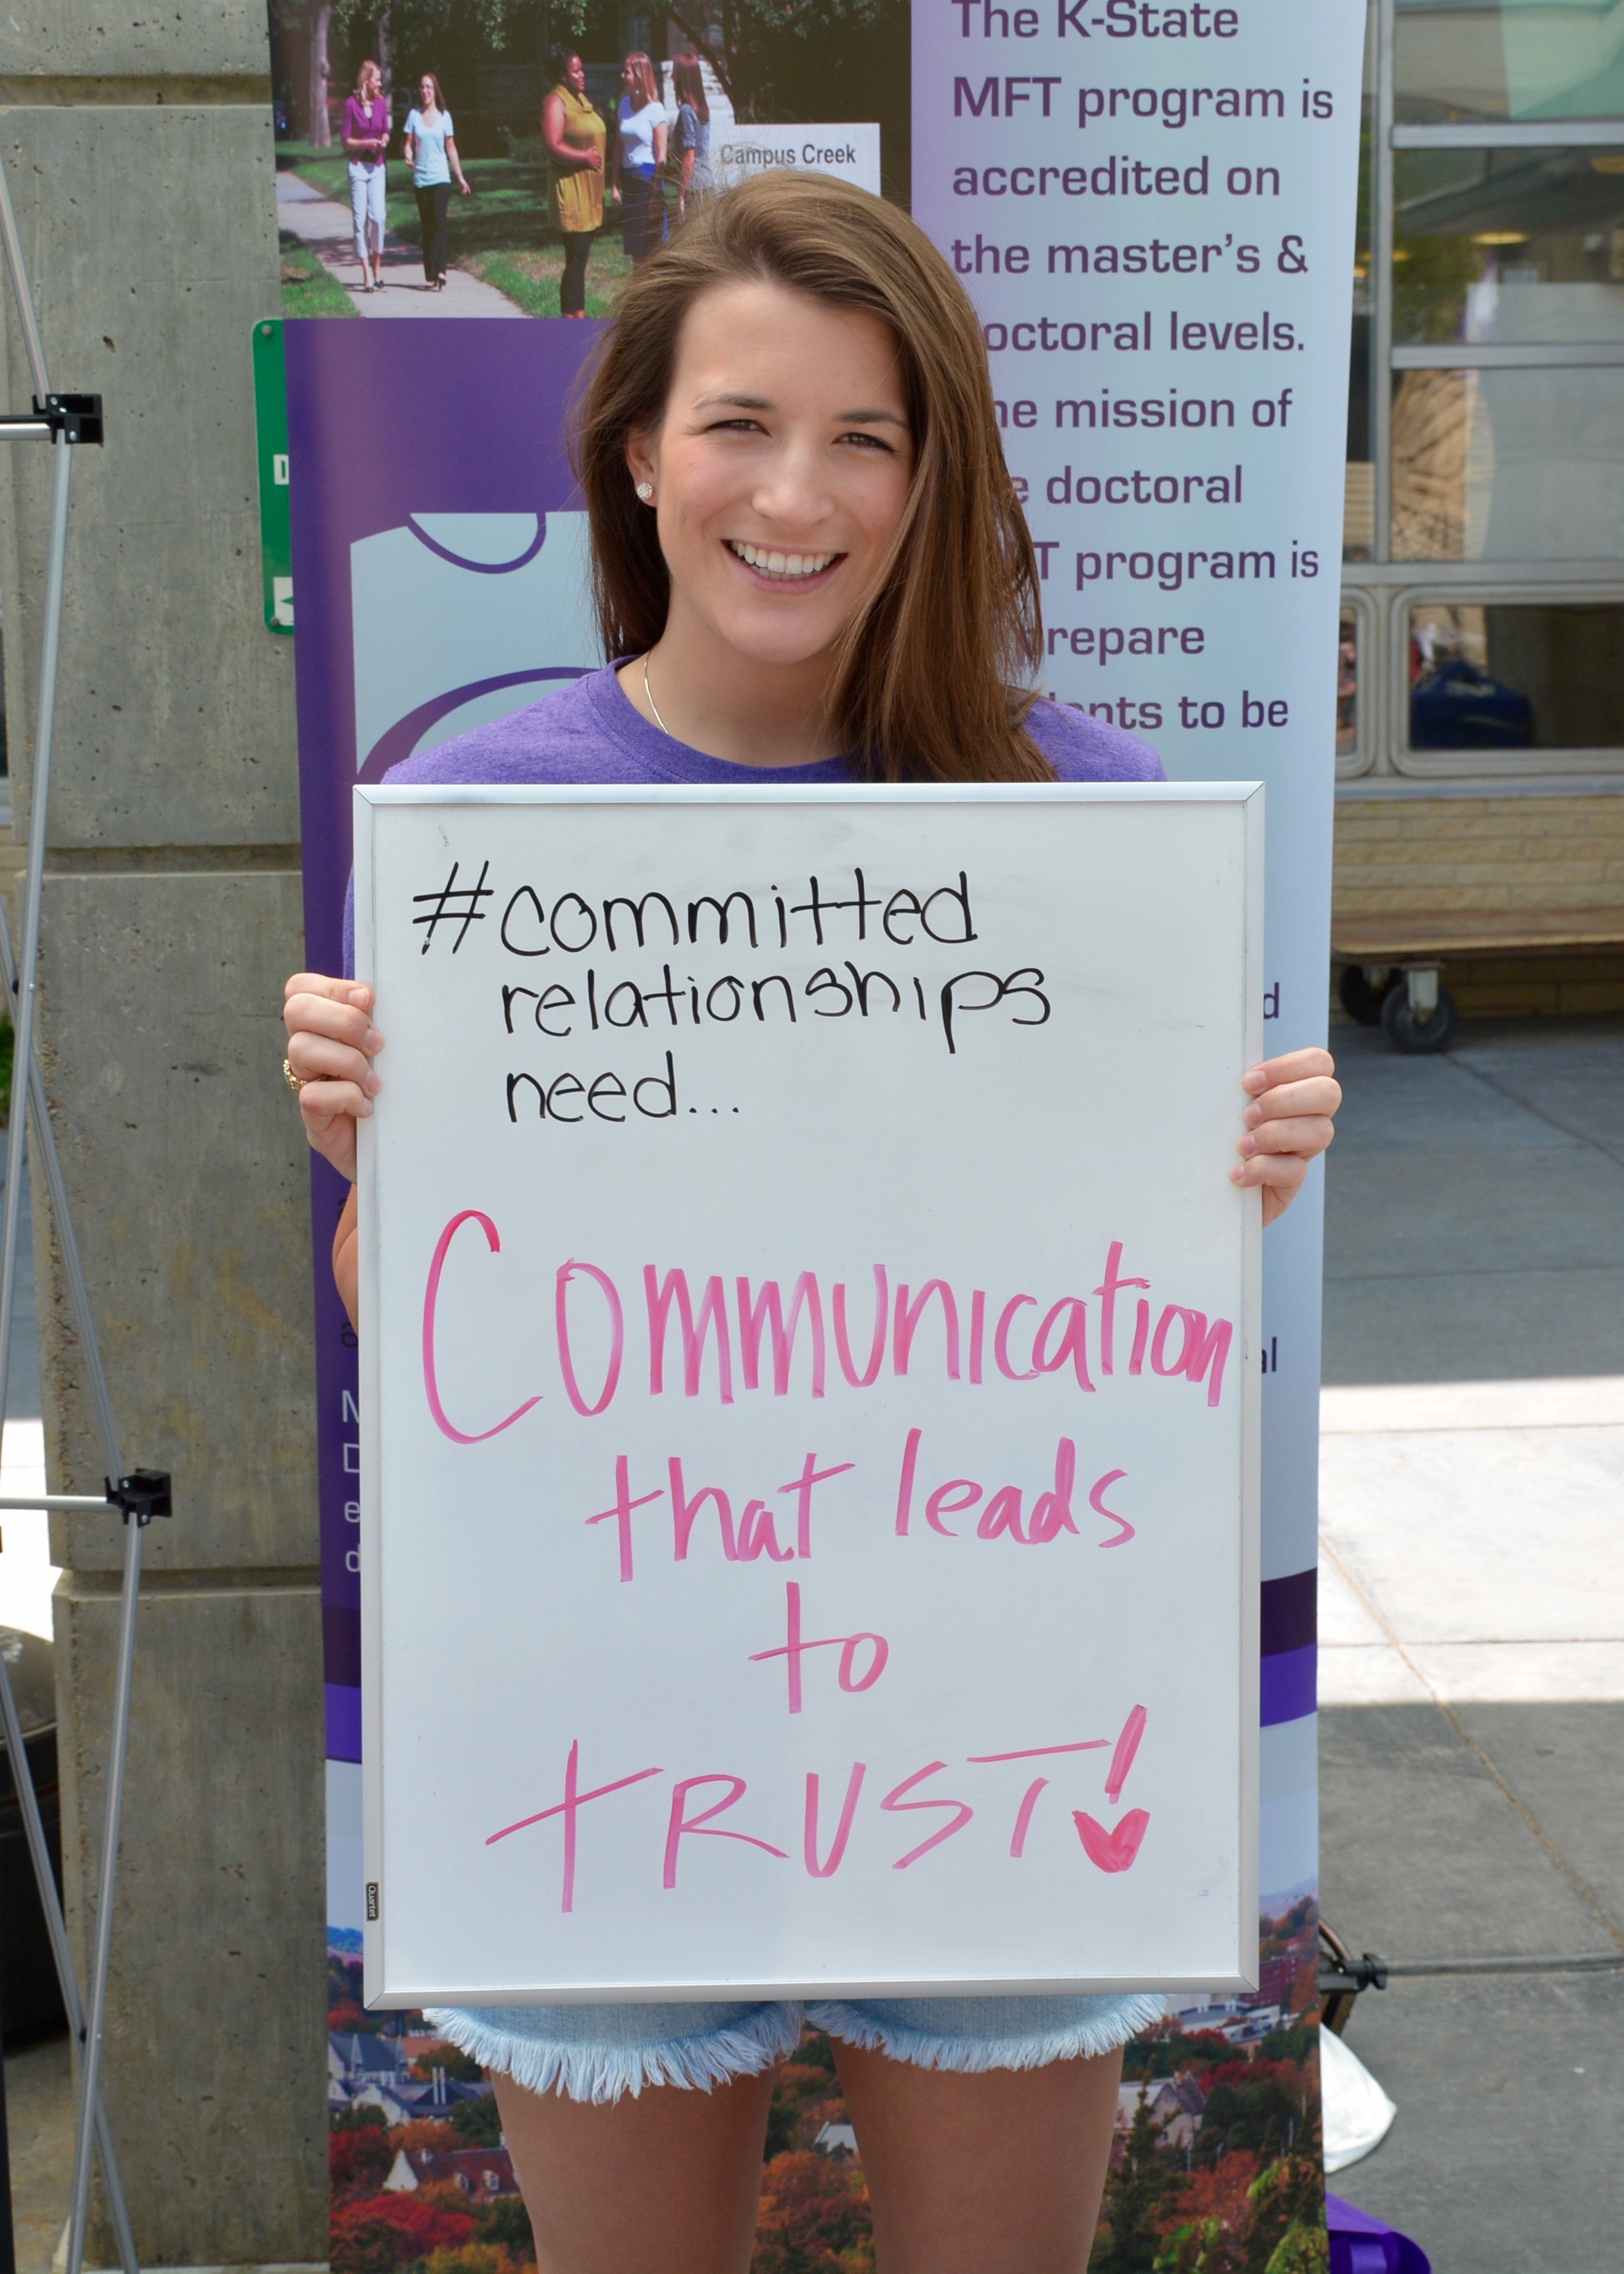 Campus Creek
The K-State
MFT program is
accredited on
the master's &
octoral levels.
mission of
doctoral
T program is
repare
to be
#committed
relationships
need...
Communication
that leads
to
tRUST!
Quartet